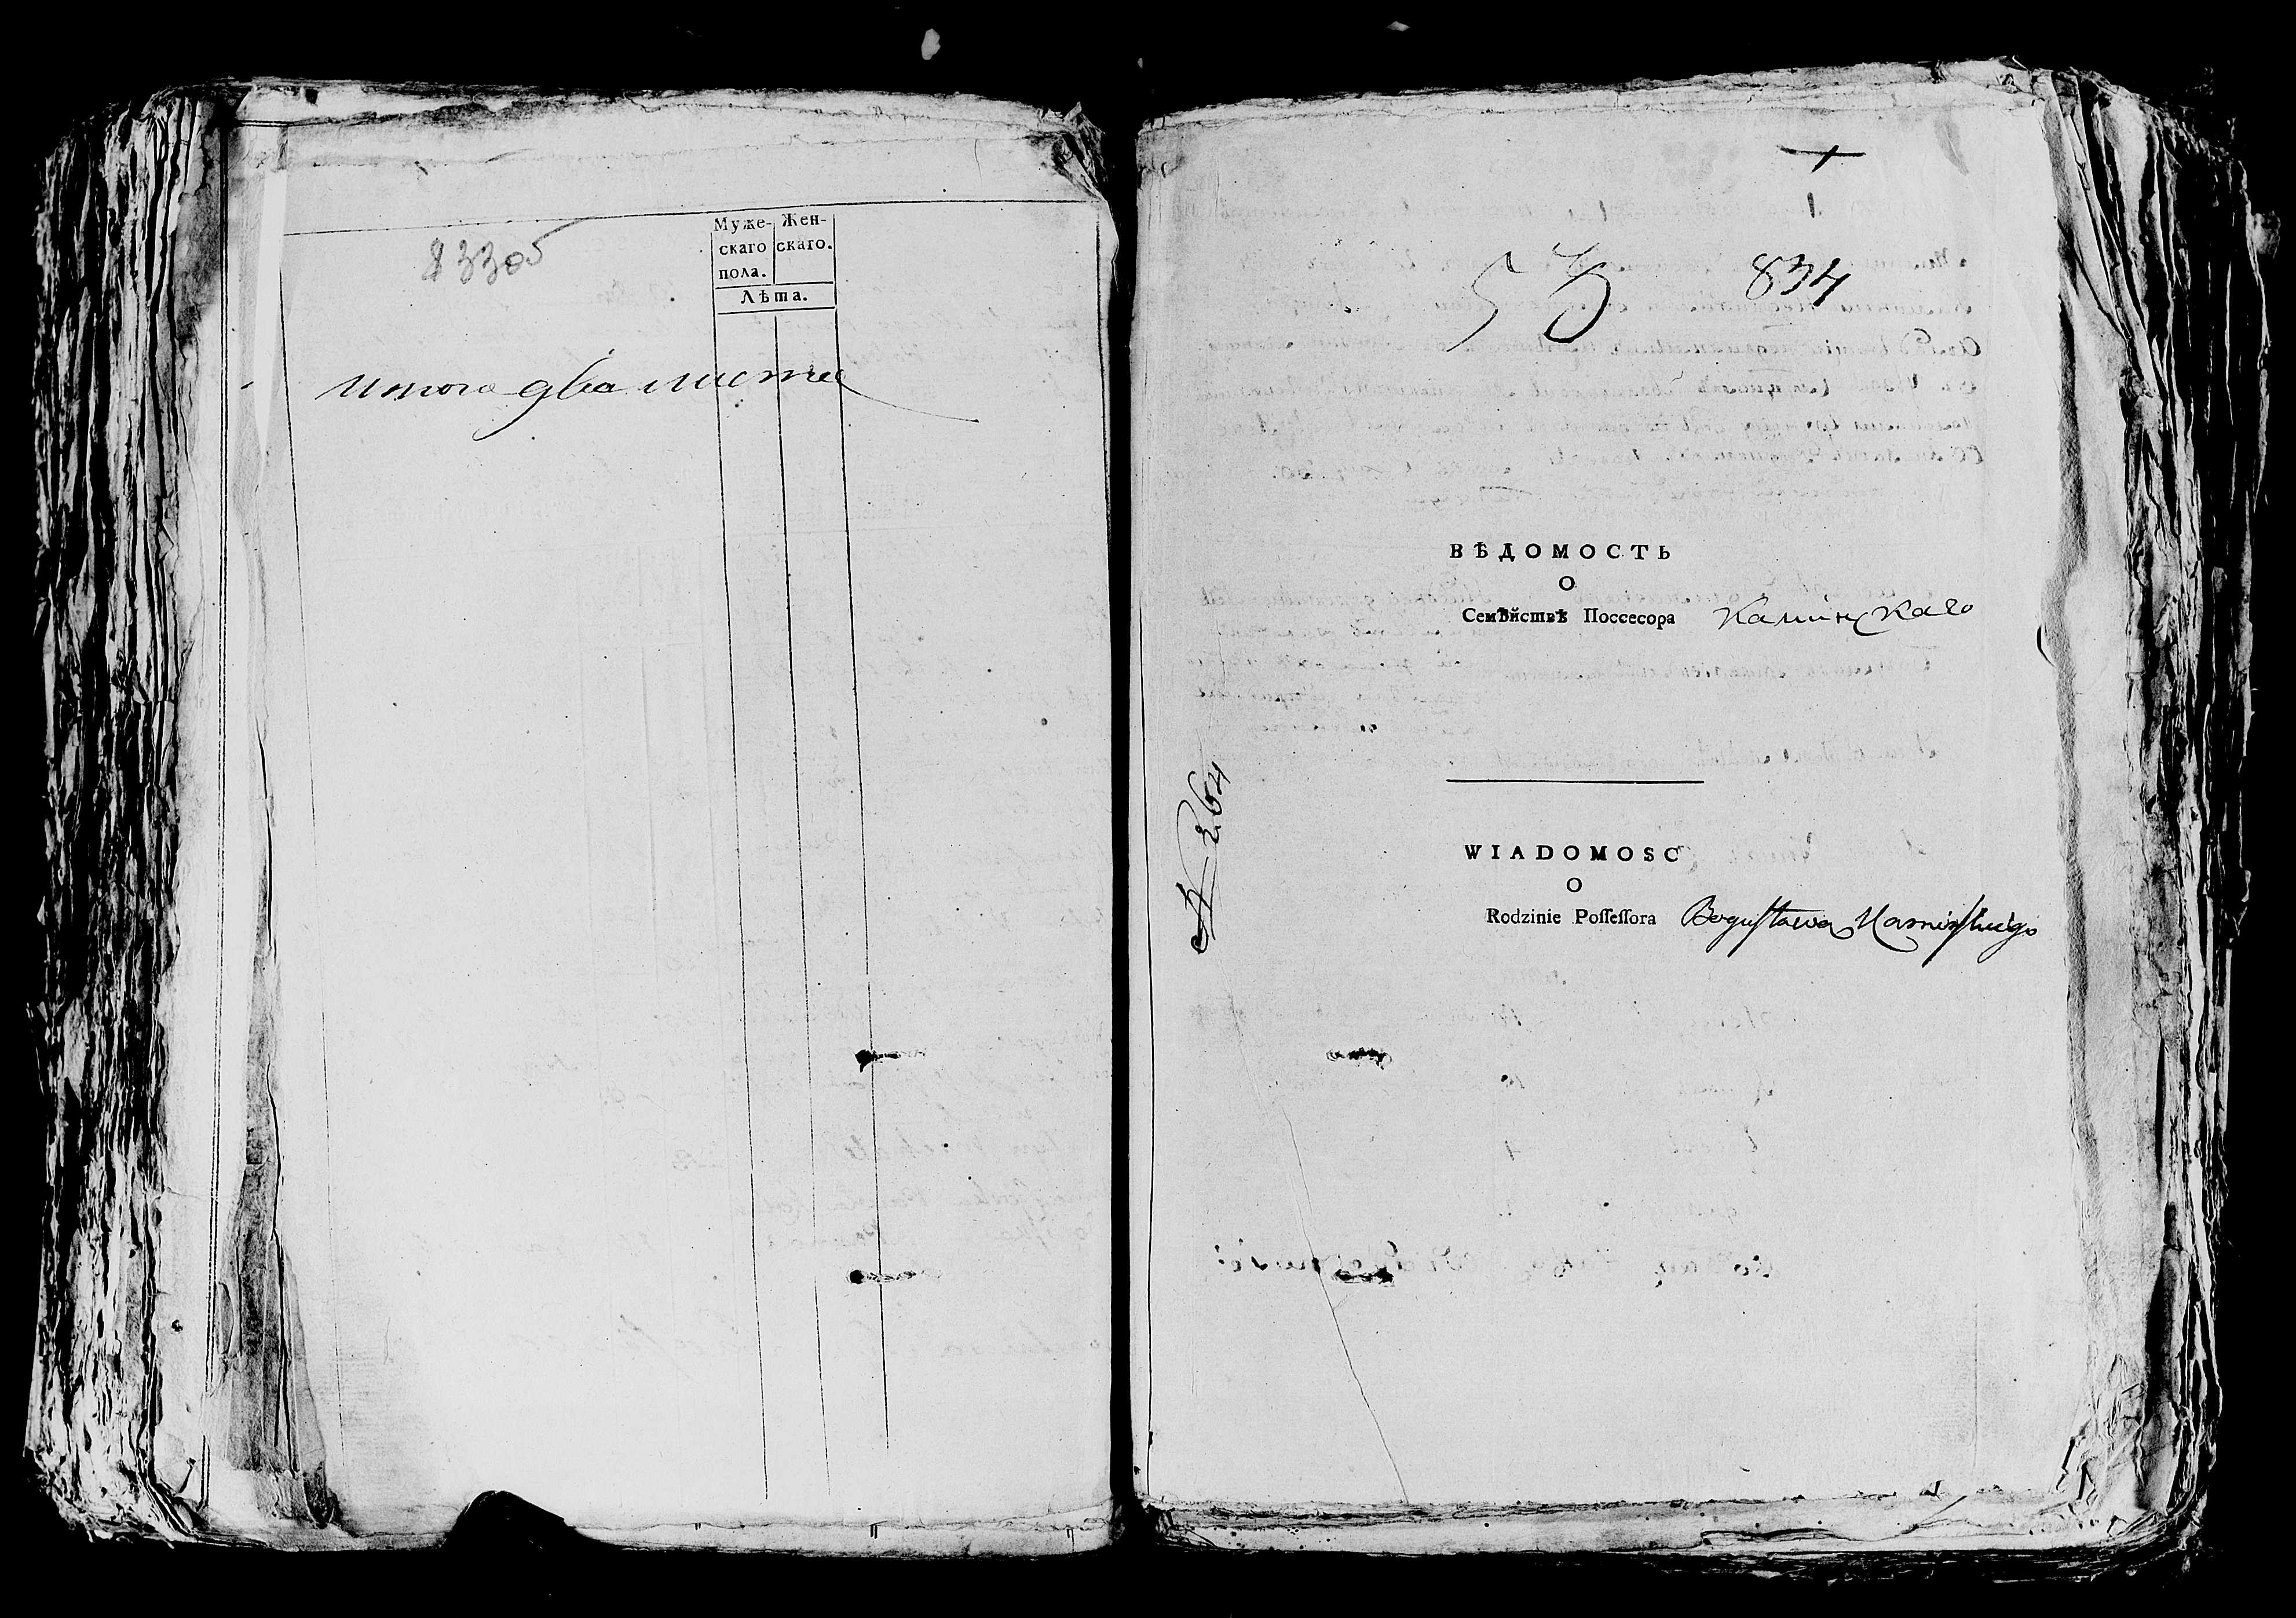 833об
Муже- Жен-
скаго скаго.
пола.
Лѣта.
итого два листа
1
53
834
ВѢДОМОСТЬ
О
Семѣйствѣ Поссесора Каминскаго
№ 264
WIADOMOSC
O
Rodzinie Poſſeſſora Boguſława Kaminſkiego